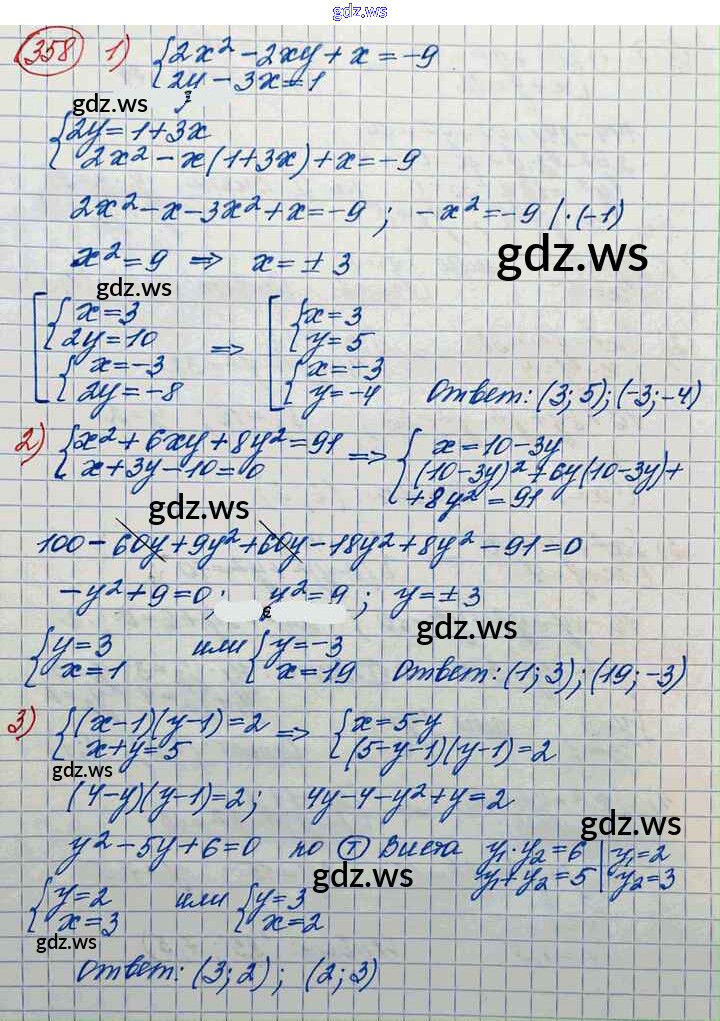 gdz.ws
358 1) {2x² - 2xy + x = -9
{2y - 3x = 1
gdz.ws
{2y = 1+3x
{2x² - x(1+3x) + x = -9
2x² - x - 3x² + x = -9 ; -x² = -9 | ·(-1)
x² = 9 ⇒ x = ± 3
gdz.ws
gdz.ws
[{x = 3 ⇒ [{x = 3
{2y = 10 {y = 5
{x = -3 {x = -3
{2y = -8 {y = -4
Ответ: (3; 5); (-3; -4)
2) {x² + 6xy + 8y² = 91 ⇒ {x = 10 - 3y
{x + 3y - 10 = 0 {(10-3y)² + 6y(10-3y) +
+ 8y² = 91
gdz.ws
100 - 60y + 9y² + 60y - 18y² + 8y² - 91 = 0
-y² + 9 = 0; y² = 9 ; y = ± 3
gdz.ws
{y = 3 или {y = -3
{x = 1 {x = 19 Ответ: (1; 3); (19; -3)
3) {(x-1)(y-1) = 2 ⇒ {x = 5-y
{x+y = 5 {(5-y-1)(y-1) = 2
gdz.ws
(4-y)(y-1) = 2; 4y - 4 - y² + y = 2
gdz.ws
y² - 5y + 6 = 0 по Т Виета y₁·y₂ = 6 | y₁ = 2
y₁+y₂ = 5 | y₂ = 3
gdz.ws
{y = 2 или {y = 3
{x = 3 {x = 2
gdz.ws
Ответ: (3; 2) ; (2; 3)